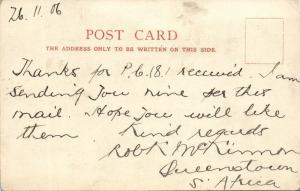 26.11.06
POST CARD
THE ADDRESS ONLY TO BE WRITTEN ON THIS SIDE.
Thanks for P.C. (8) received. I am
sending you nine per this
mail. Hope you will like
them. Kind regards
Robt McKinnon
Queenstown
S. Africa